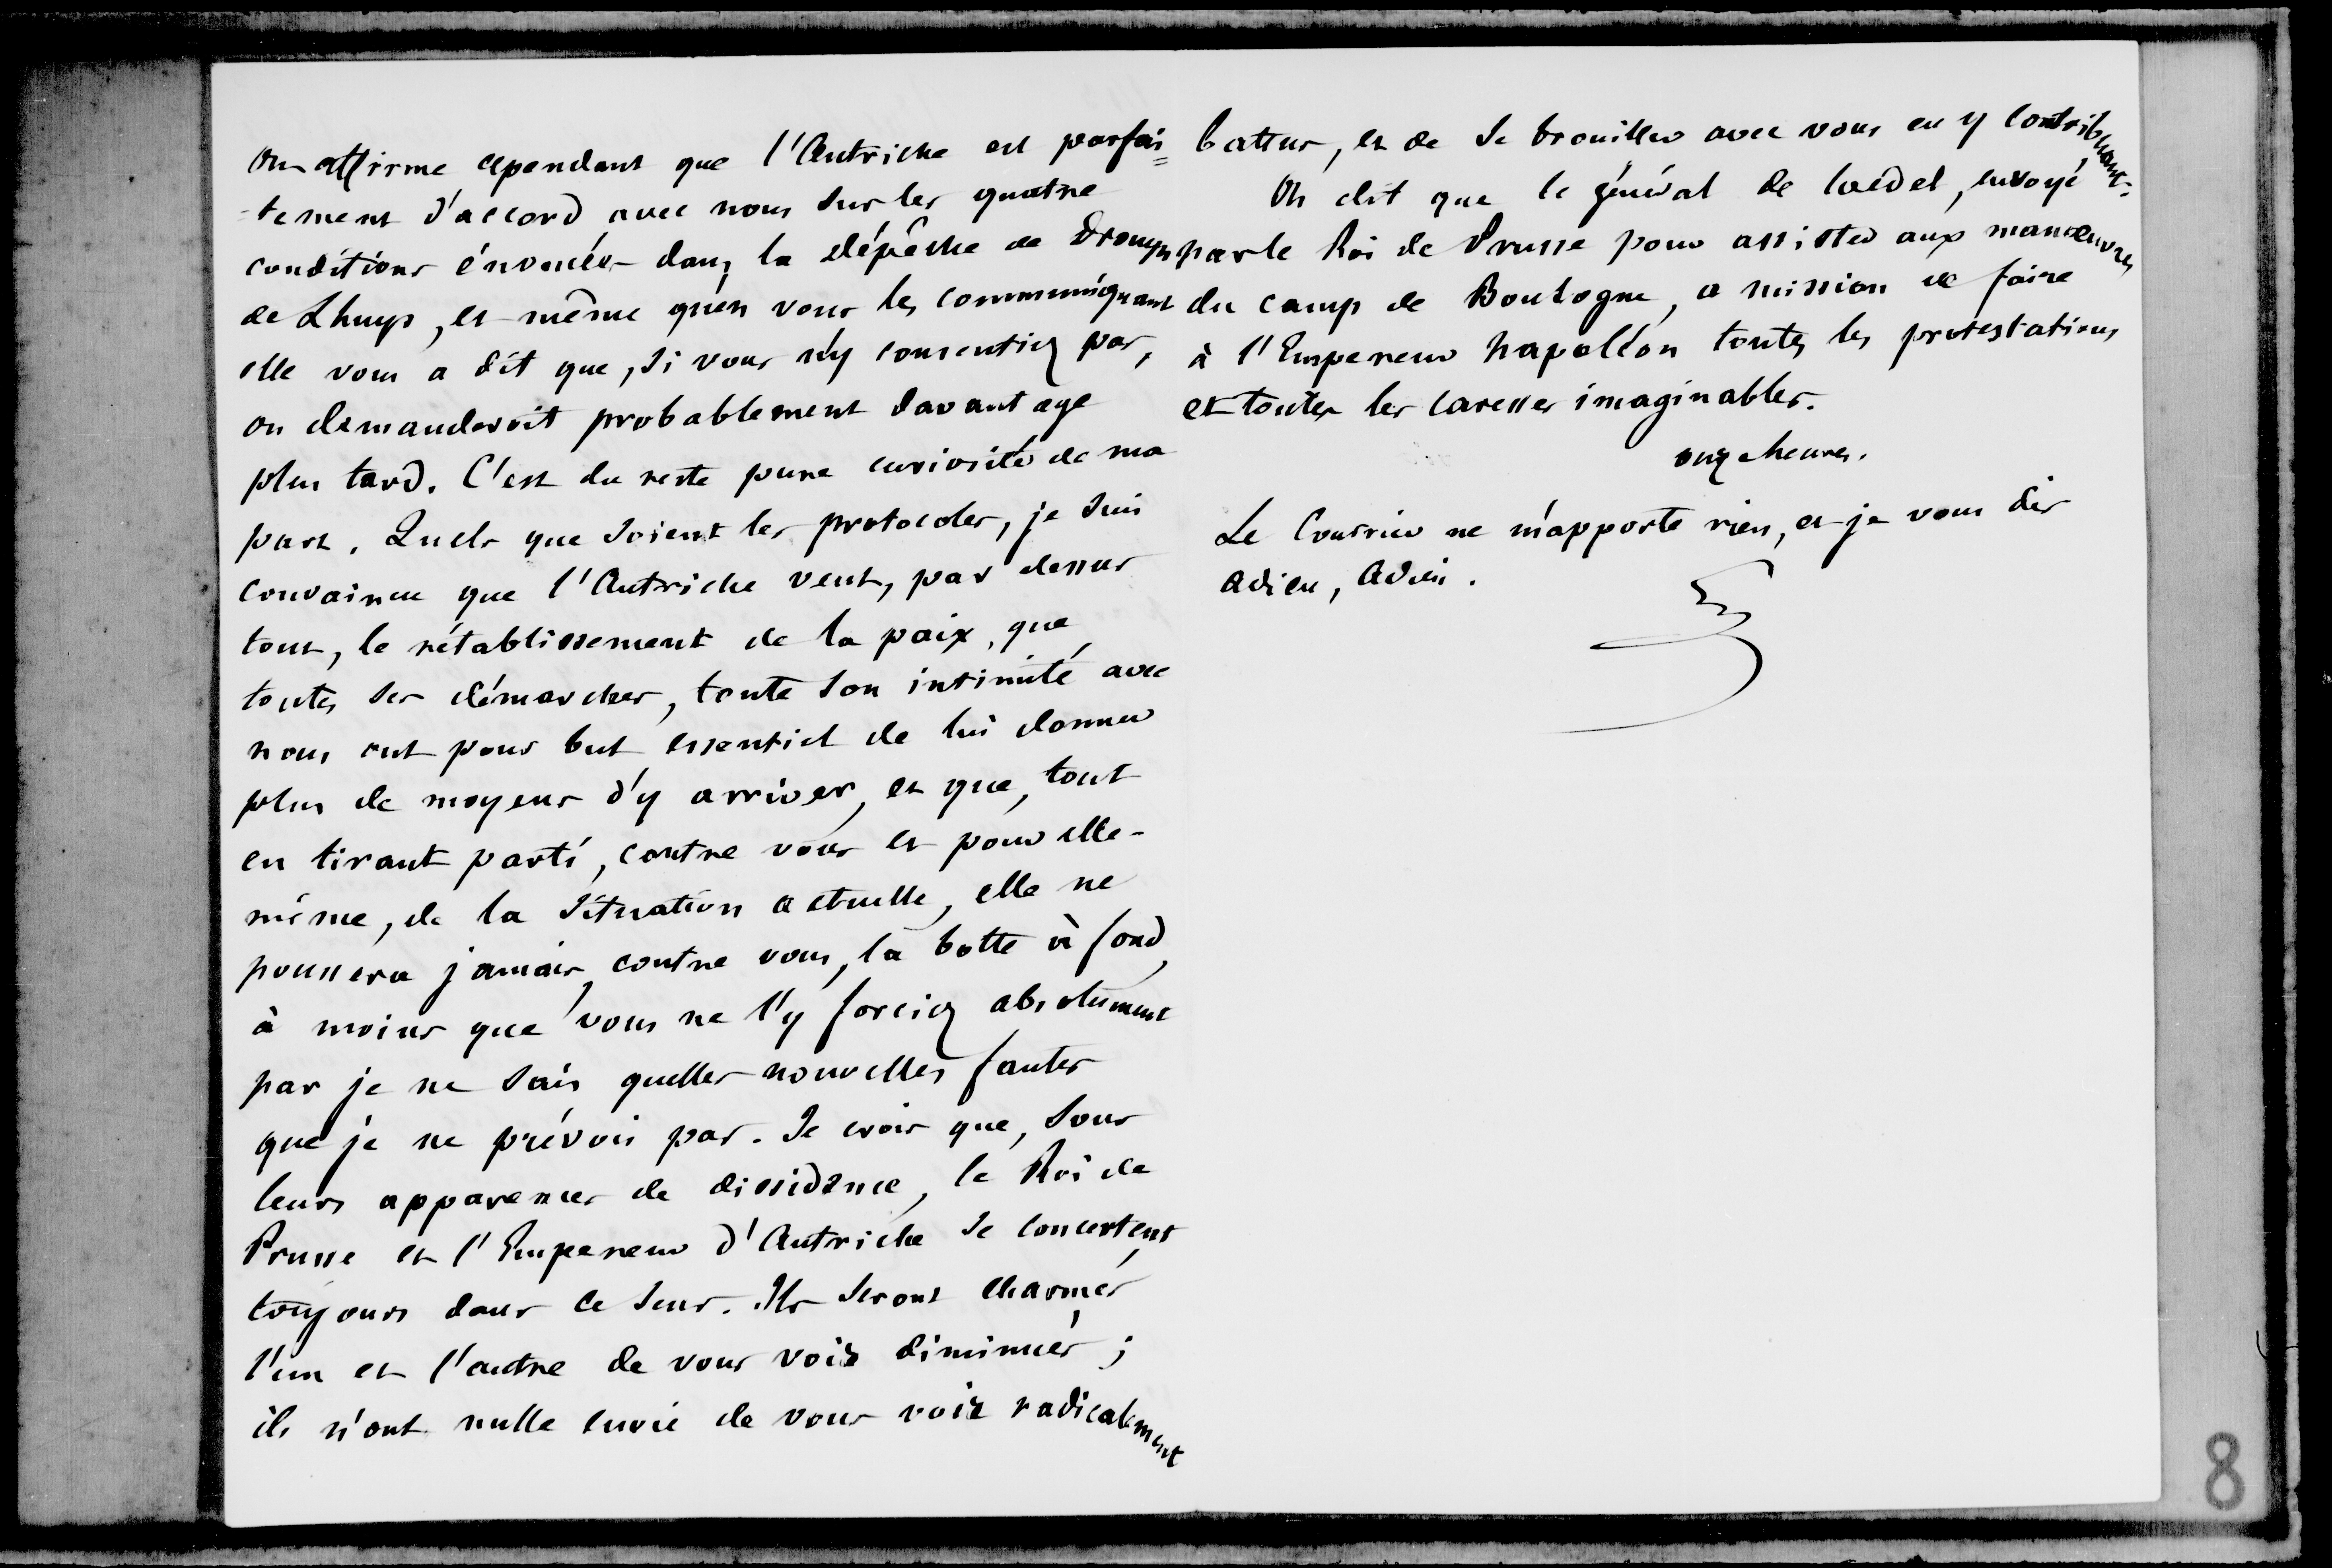 On affirme cependant que l'Autriche est parfai=
-tement d'accord avec nous sur les quatre
conditions énoncées dans la dépêche de Drouyn
de Lhuys, et même qu'en vous les communiquant
elle vous a dit que, si vous n'y consentiez pas,
on demanderoit probablement davantage
plus tard. C'est du reste pure curiosité de ma
part. Quels que soient les protocoles, je suis
convaincu que l'Autriche veut, par dessus
tout, le rétablissement de la paix, que
toutes ses démarches, toute son intimité avec
nous ont pour but essentiel de lui donner
plus de moyens d'y arriver, et que, tout
en tirant parti, contre vous et pour elle-
même, de la situation actuelle, elle ne
poussera jamais, contre vous, la botte à fond,
à moins que vous ne l'y forciez absolument
par je ne sais quelles nouvelles fautes
que je ne prévois pas. Je crois que, sous
leurs apparences de dissidence, le Roi de
Prusse et l'Empereur d'Autriche se concertent
toujours dans ce sens. Ils seront charmés
l'un et l'autre de vous voir diminués ;
ils n'ont nulle envie de vous voir radicalement
battus, et de se brouiller avec vous en y contribuant.
On dit que le général de Wedel, envoyé
par le Roi de Prusse pour assister aux manoeuvres
du camp de Boulogne, a mission de faire
à l'Empereur Napoléon toutes les protestations
et toutes les caresses imaginables.
onze heures.
Le Courrier ne m'apporte rien, et je vous dis
adieu, adieu.
8